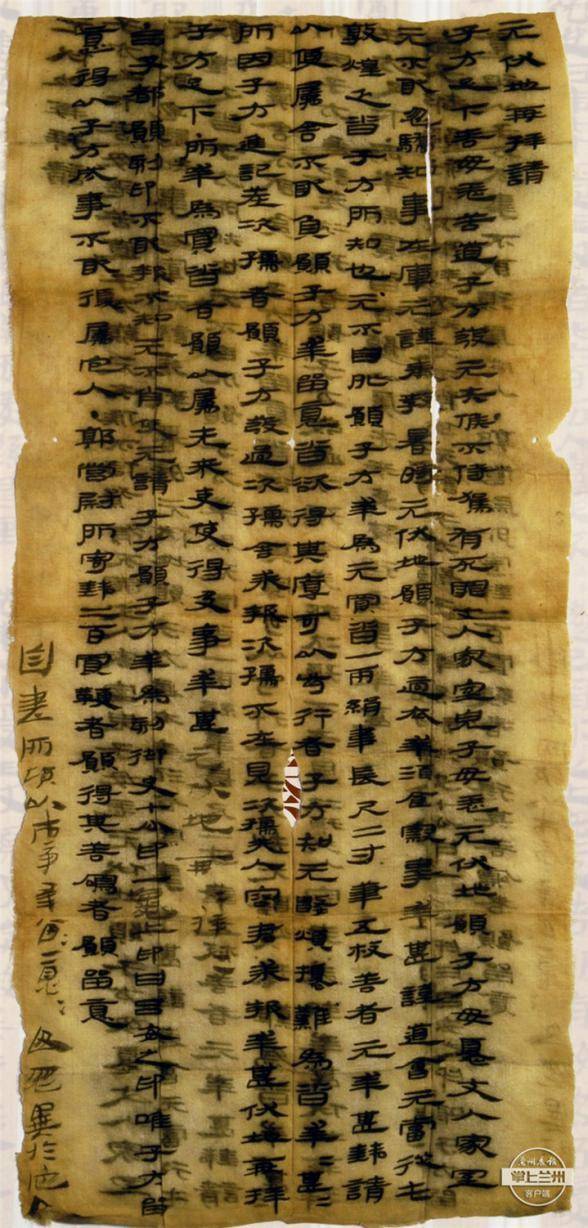 元伏地再拜請
子方足下善毋恙苦道子方發元失候不侍駕有死罪丈人家室兒子毋恙元伏地願子方毋憂丈人家室
元不敢忽驕知事在庫元謹奉教暑時元伏地願子方適衣幸酒食察事幸甚謹道會元當從屯
敦煌乏沓子方所知也元不自外願子方幸為元買沓一兩絹韋長尺二寸筆五枚善者元幸甚錢請
以便屬舍不敢負願子方幸留意沓欲得其厚可以步行者子方知元數煩擾難為沓幸=甚=
所因子方進記差次孺者願子方發過次孺舍求報次孺不在見次孺夫人容君求報幸甚伏地再拜
子方足下·所幸為買沓者願以屬先來吏使得及事幸甚元伏地再拜再拜
呂子都願刻印不敢報不知元不肖使元請子方願子方幸為刻御史七分印一龜上印曰呂安之印唯子方留
意得以子方成事不敢復屬它人·郭營尉所寄錢二百買鞭者願得其善鳴者願留意
自書所願以市事幸留=意=毋忽異於它人
蘭州晨報
掌上兰州
客户端